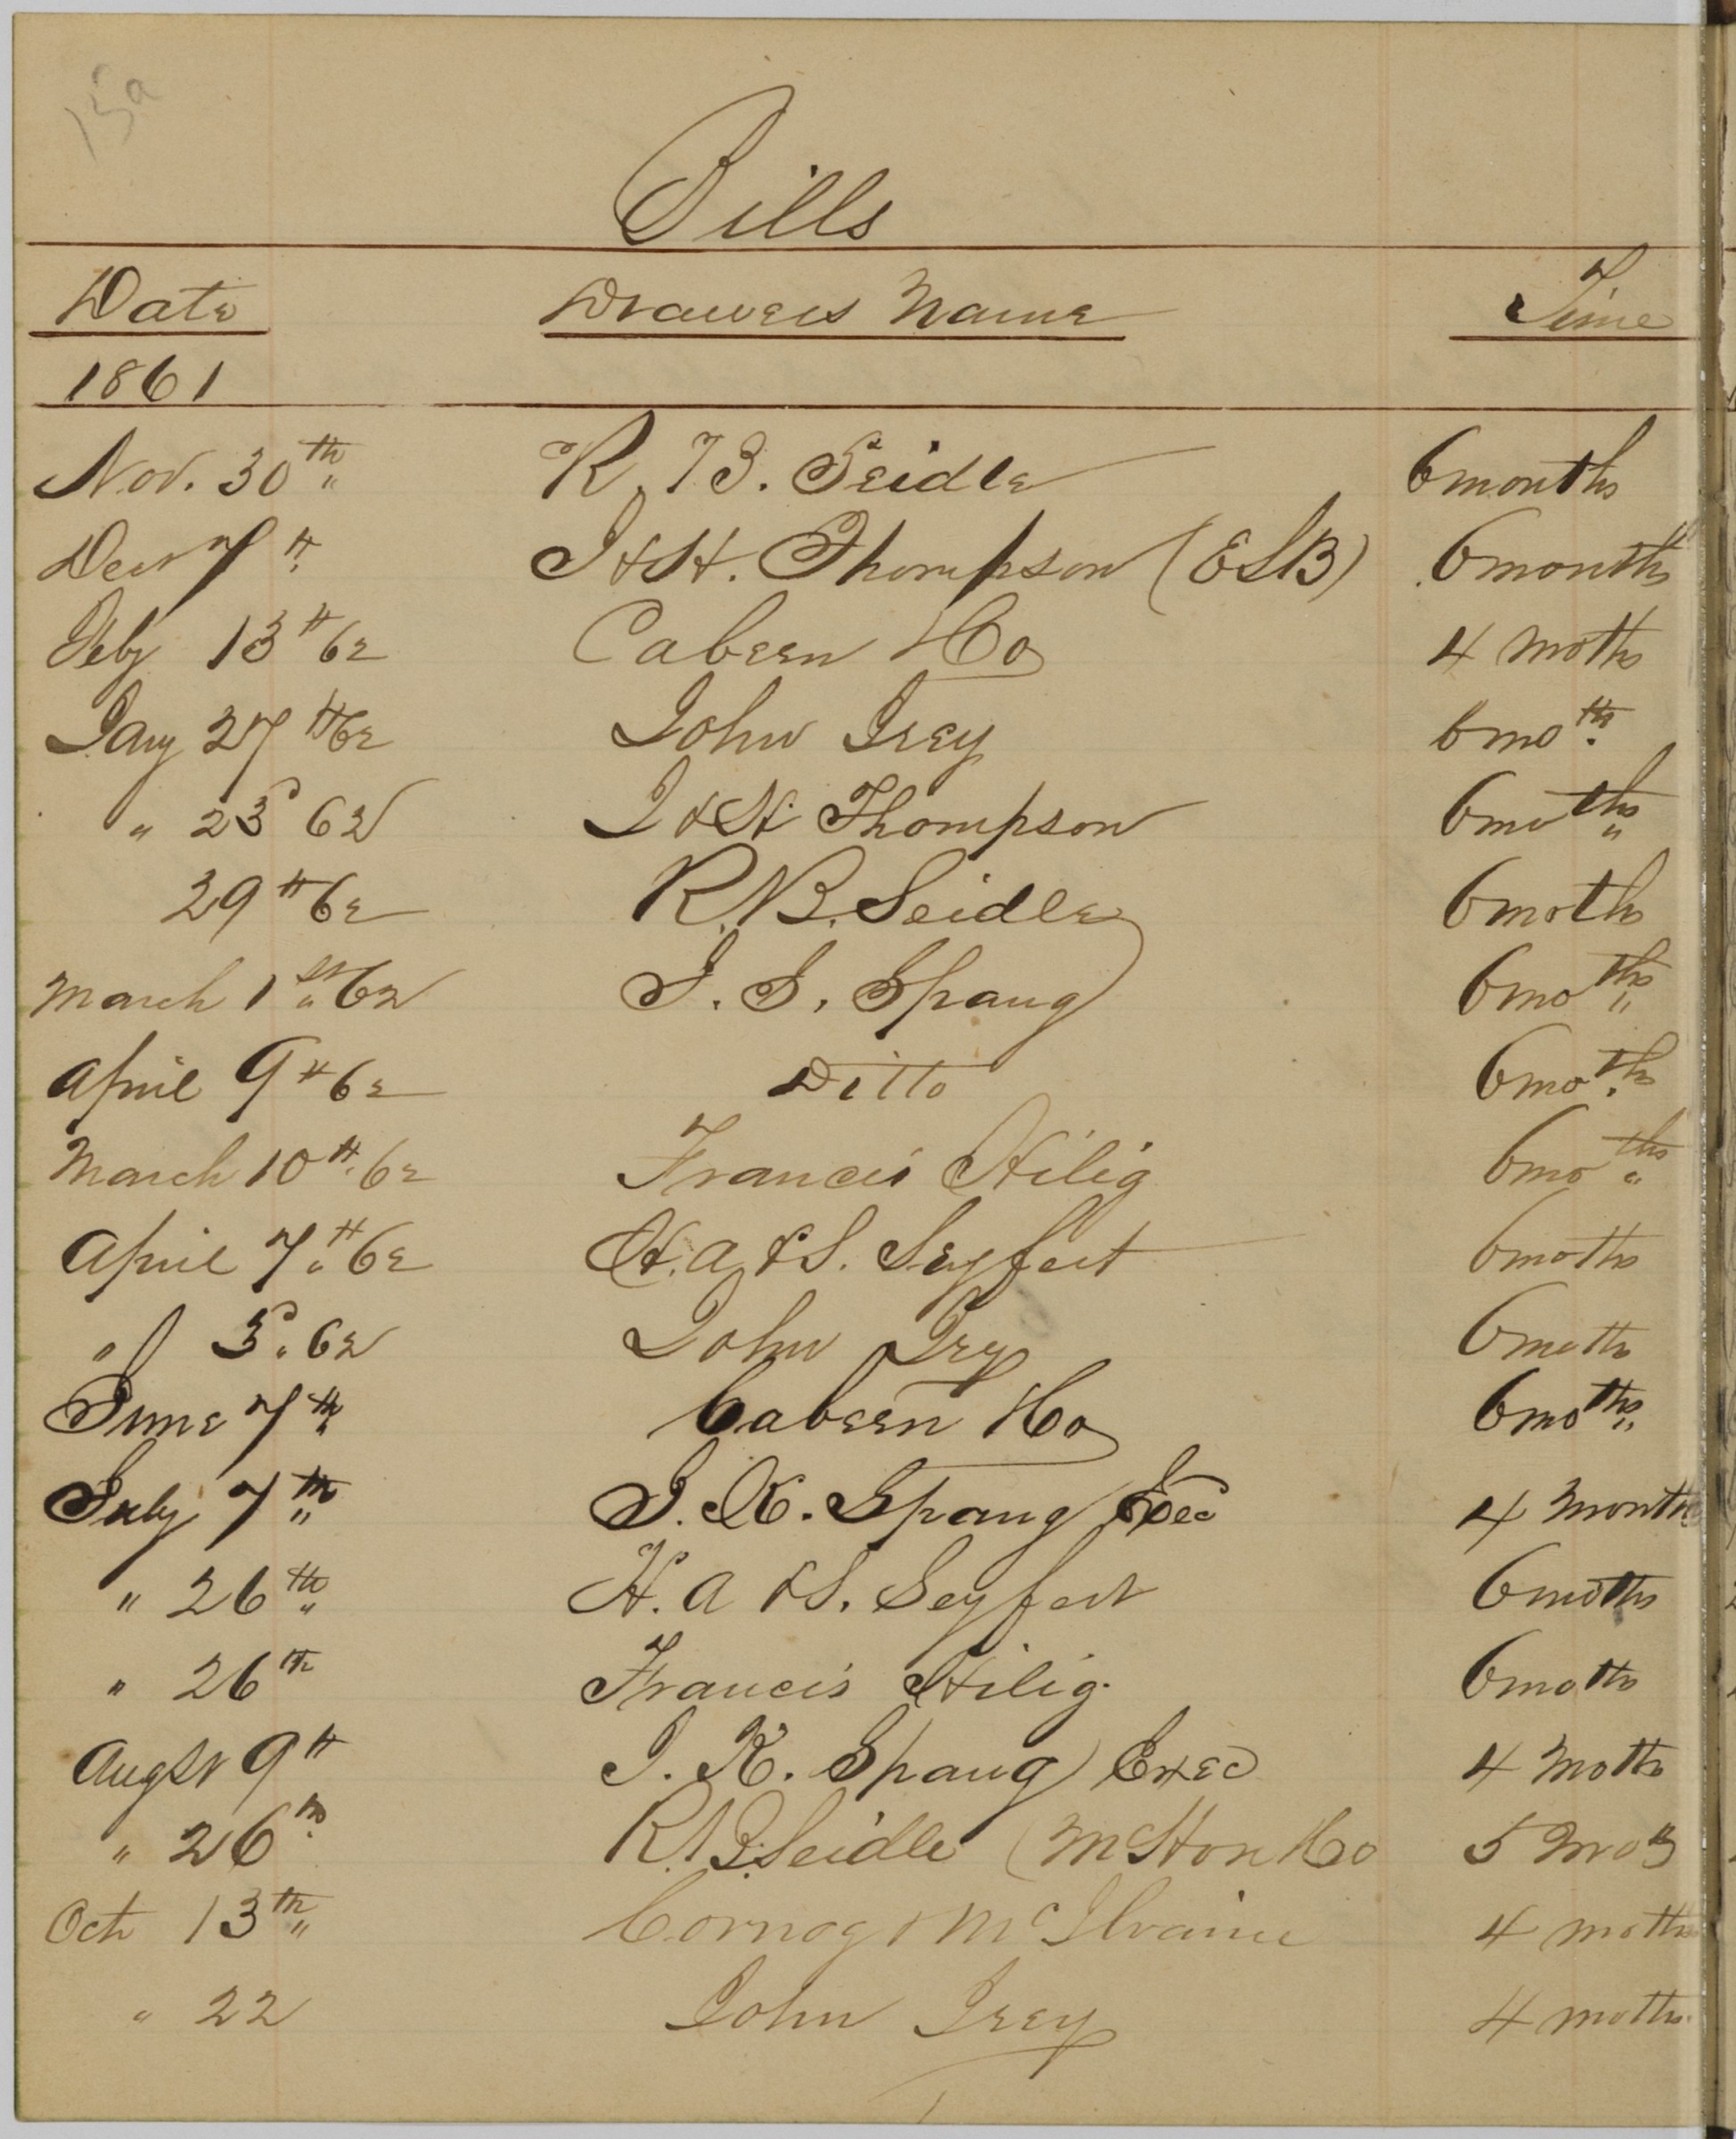 15a
Bills
Date Drawers Name Time
1861
Nov. 30th R. B. Seidle 6 months
Decr 7th J & H. Thompson (ESB) 6 months
Feby 13th 62 Cabeen & Co 4 moths
Jany 27th 62 John Irey 6 moth
" 23d 62 J & H Thompson 6 moths
29th 62 R. B. Seidle 6 moths
March 1st 62 J. S. Spang 6 moths
April 9th 62 Ditto 6 moths
March 10th 62 Francis Hilig 6 moths
April 7th 62 H. A & S. Seyfert 6 moths
" 3d 62 John Iry 6 moths
June 7th Cabeen & Co 6 moths
July 7th J. K. Spang Exec 4 months
" 26th H. A & S. Seyfert 6 moths
" 26th Francis Hilig. 6 moths
Augst 9th J. K. Spang Exec 4 moths
" 26th R. B. Seidle 5 mos
Oct 13th Cornog & McIlvaine 4 moths
" 22 John Irey 4 moths